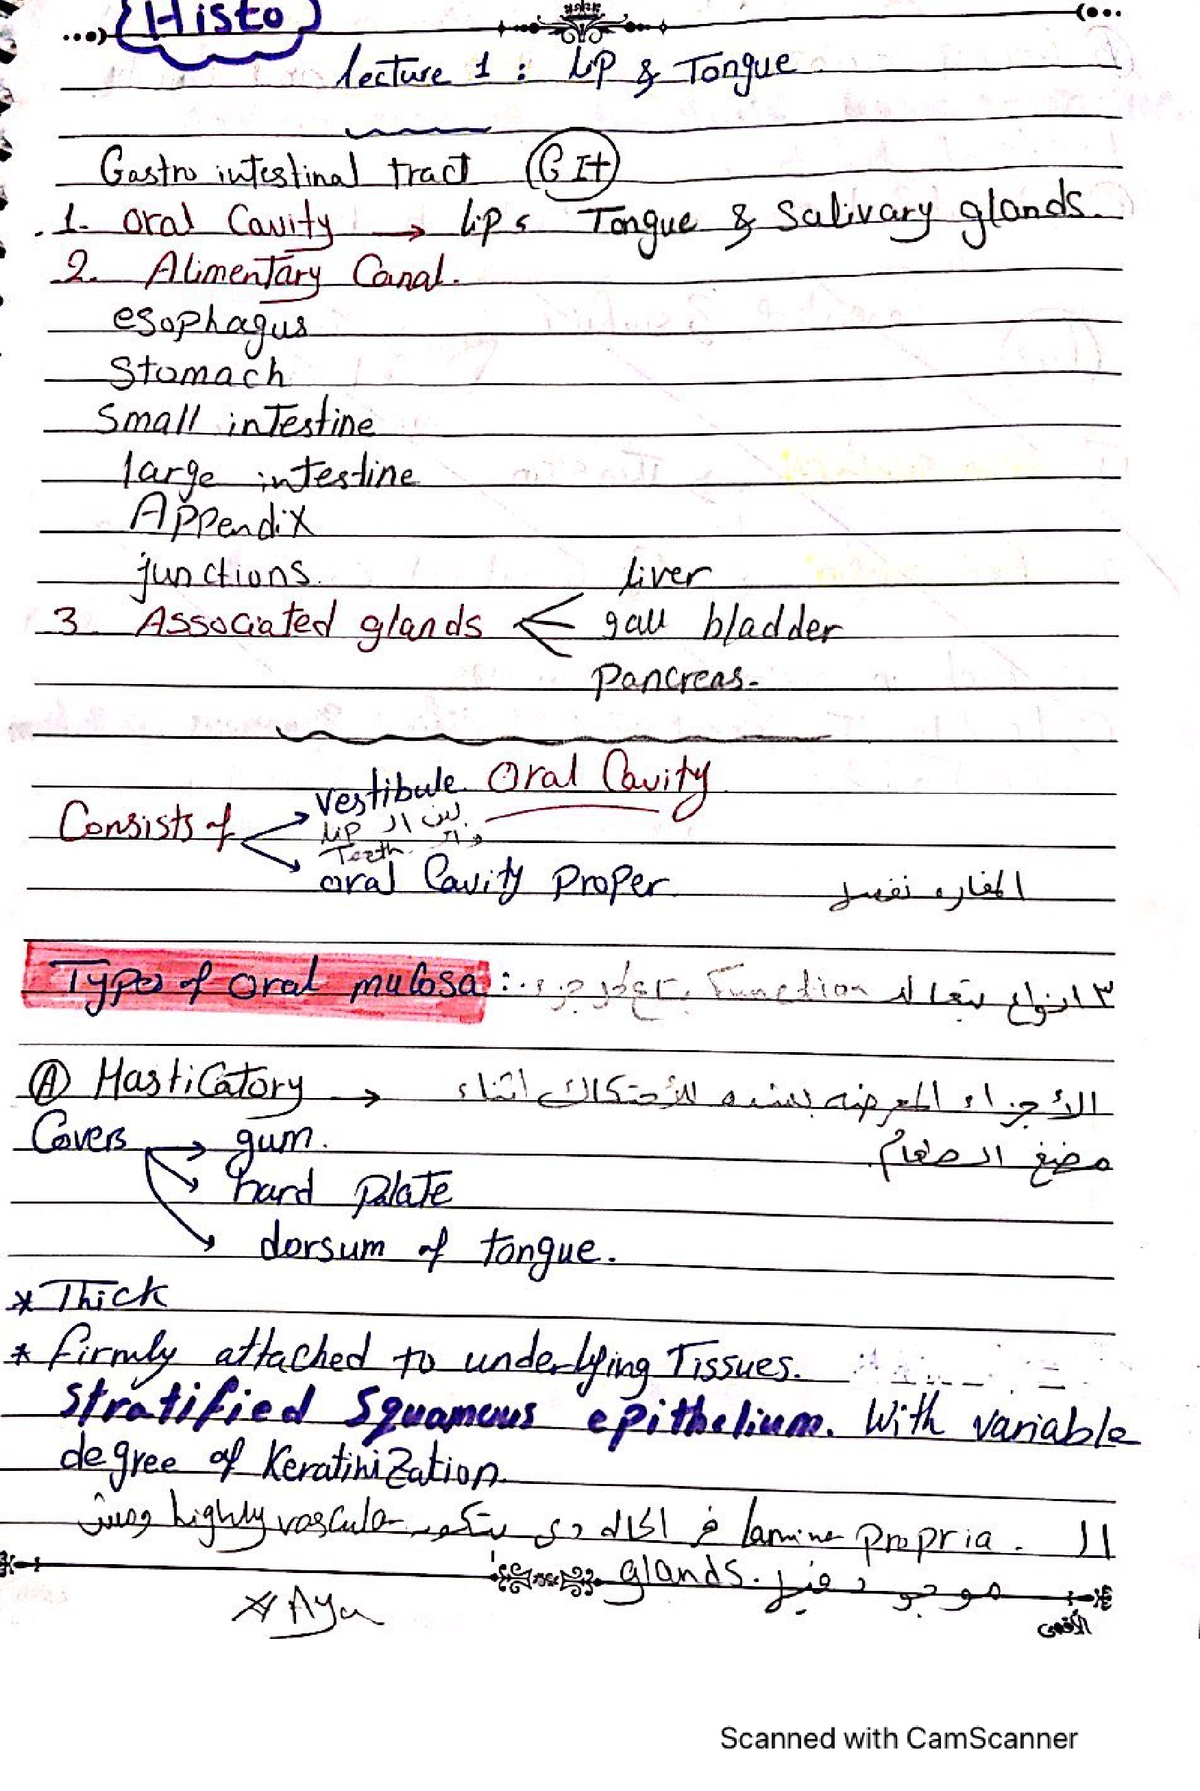 Histo
lecture 1 : Lip & Tongue
Gastro intestinal tract (GIt)
1. Oral Cavity → lips Tongue & Salivary glands.
2. Alimentary Canal.
esophagus
Stomach
Small intestine
large intestine
Appendix
junctions.
liver
3. Associated glands gall bladder
pancreas.
Oral Cavity
Consists of
vestibule
بين الـ Lip
والـ Teeth
oral Cavity Proper المغاره نفسها
Types of oral mucosa : ٣ انواع تبعا لـ Function بتاع كل جزء
Ⓐ Masticatory → الأجزاء المعرضه بشده للأحتكاك اثناء
مضغ الطعام
Covers → gum.
hard palate
dorsum of tongue.
* Thick
* firmly attached to underlying Tissues.
stratified Squamous epithelium. With variable
degree of Keratinization
الـ lamina propria. في الحاله دي بتكون highly vascular ومش
موجود فيها glands.
* Aya
الأقصى
Scanned with CamScanner